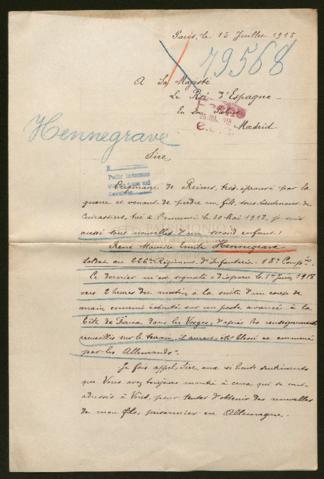 Paris, le 15 Juillet 1918
79568
A Sa Majesté
Le Roi d'Espagne
en Son Palais
Madrid
Hennegrave
Sire
Originaire de Reims, très éprouvé par la
guerre et venant de perdre un fils, sous-lieutenant de
Cuirassiers, tué à le 20 Mai 1918, je suis
aussi sans nouvelles d'un second enfant:
René Maurice Emile Hennegrave
soldat au 226e Régiment d'Infanterie. 18e Compie.
Ce dernier m'est signalé disparu le 1er Juin 1918
vers 2 heures du matin, à la suite d'un coup de
main ennemi exécuté sur un poste avancé à la
Tête de Faux, dans les Vosges, d'après les renseignements
recueillis sur le terrain, il aurait été blessé et emmené
par les Allemands.
Je fais appel, Sire, aux si hauts sentiments
que Vous avez toujours montré à ceux qui se sont
adressés à Vous, pour tenter d'obtenir des nouvelles
de mon fils, prisonnier en Allemagne.